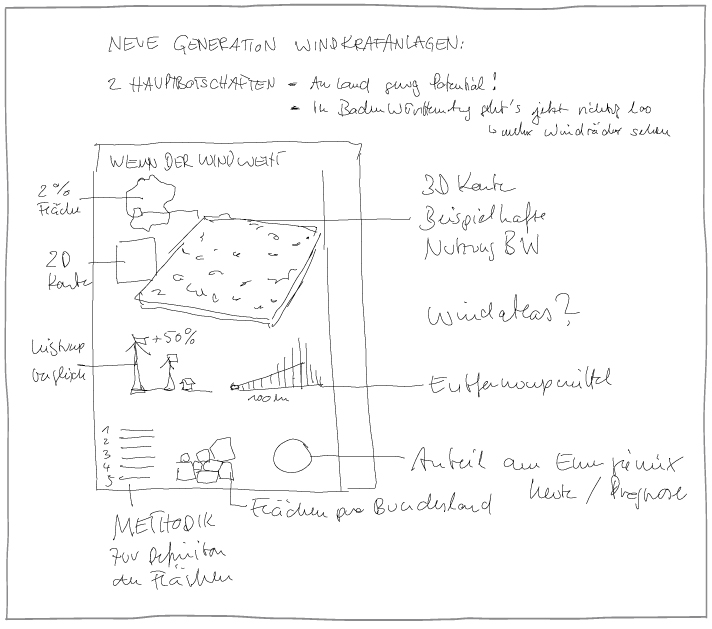 NEUE GENERATION WINDKRAFANLAGEN:
2 HAUPTBOTSCHAFTEN - An Land genug Potential!
- In Baden Württemberg geht's jetzt richtig los
↳ mehr Windräder sehen
WENN DER WIND WEHT
2% Fläche
3D Karte
Beispielhafte
Nutzung BW
2D
Karte
Windatlas?
Leistungs
vergleich
+50%
100 km
Entfernungsmittel
1
2
3
4
5
Anteil am Energiemix
heute / Prognose
Flächen pro Bundesland
METHODIK
zur Definition
der Flächen